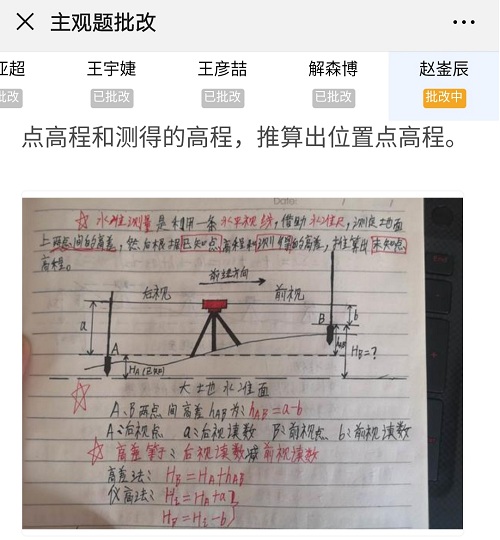 主观题批改
亚超 王宇婕 王彦喆 解森博 赵崟辰
批改 已批改 已批改 已批改 批改中
点高程和测得的高程，推算出位置点高程。
Date:
☆ 水准测量是利用一条水平视线，借助水准尺，测定地面
上两点间的高差，然后根据已知点高程和测得的高差，推算出未知点
高程。
前进方向
后视 前视
a b
B
A hAB HB=?
HA(已知)
大地水准面
A、B两点间高差hAB为：hAB=a-b
A：后视点 a：后视读数 B：前视点 b：前视读数
☆ 高差等于：后视读数减前视读数
高差法：HB=HA+hAB
仪高法：Hi=HA+a
HB=Hi-b
End